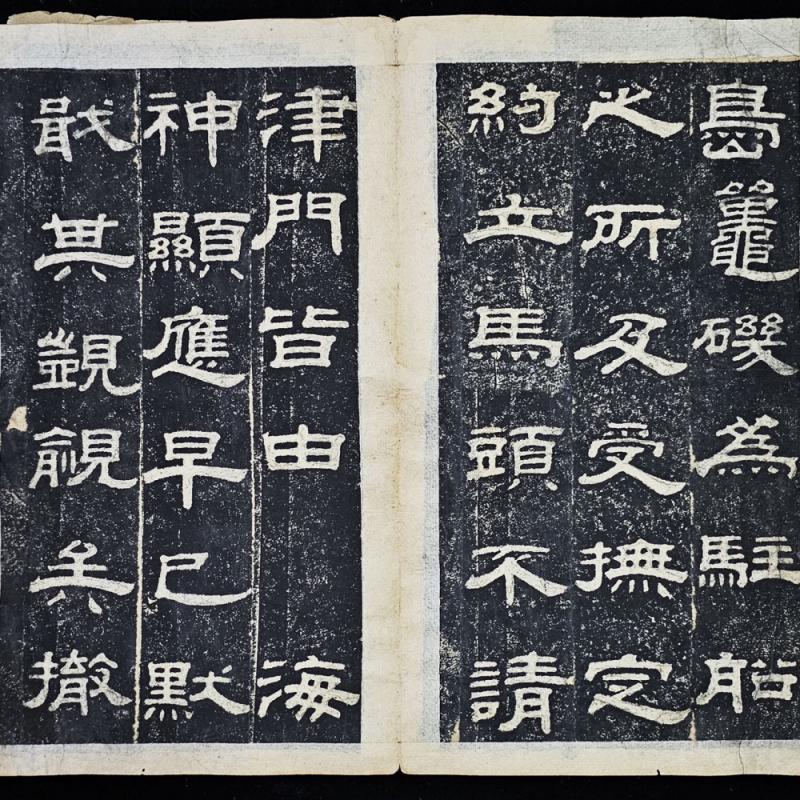 島磯為駐船
之所及受撫定
約立馬頭不請
津門皆由　海
神顯應早已默
戢其覬覦矣撤